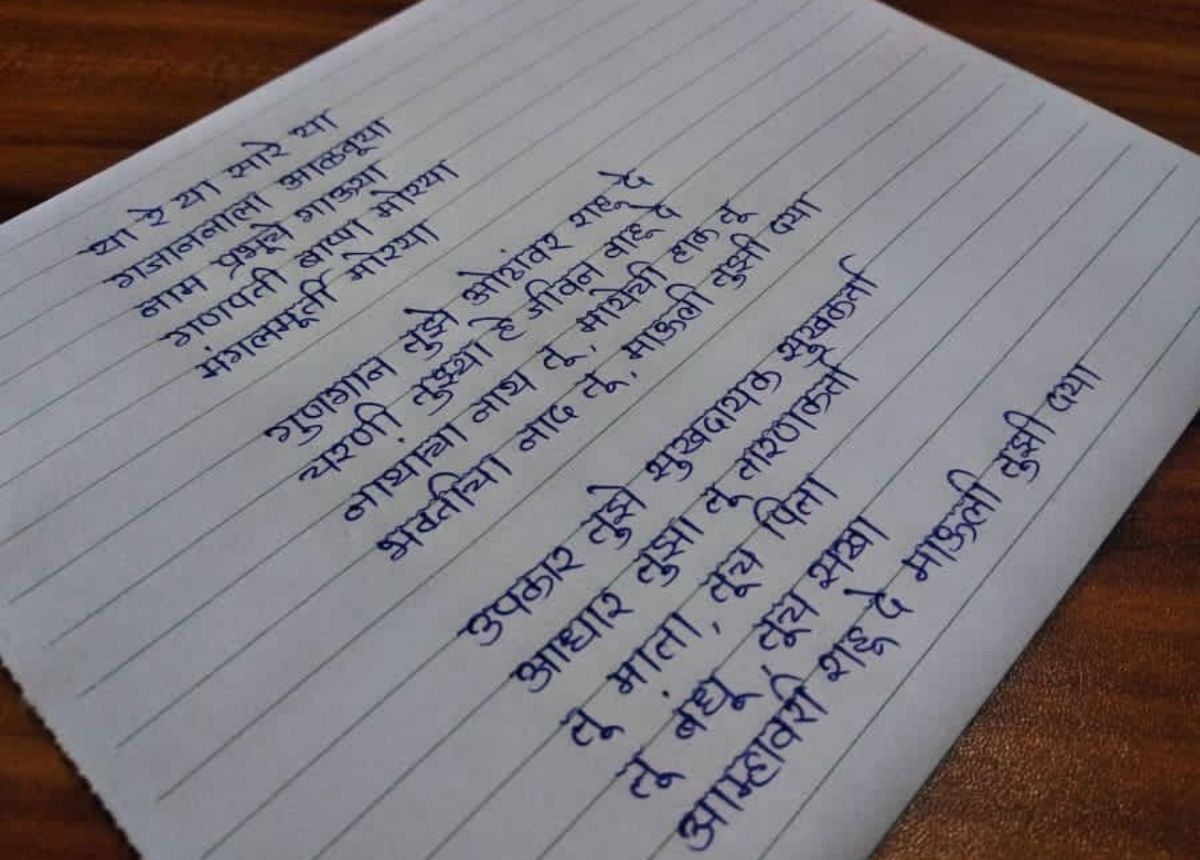 या रे या सारे या
गजाननाला आळवूया
नाम प्रभूचे गाऊया
गणपती बाप्पा मोरया
मंगलमूर्ती मोरया
गुणगान तुझे ओठांवर राहू दे
चरणी तुझ्या हे जीवन वाहू दे
नाथांचा नाथ तू, मायेची हाक तू
भक्तीचा नाद तू, माऊली तुझी दया
उपकार तुझे सुखदायक सुखकर्ता
आधार तुझा तू तारणकर्ता
तू माता, तूच पिता
तू बंधू, तूच सखा
आम्हावरी राहू दे माऊली तुझी दया